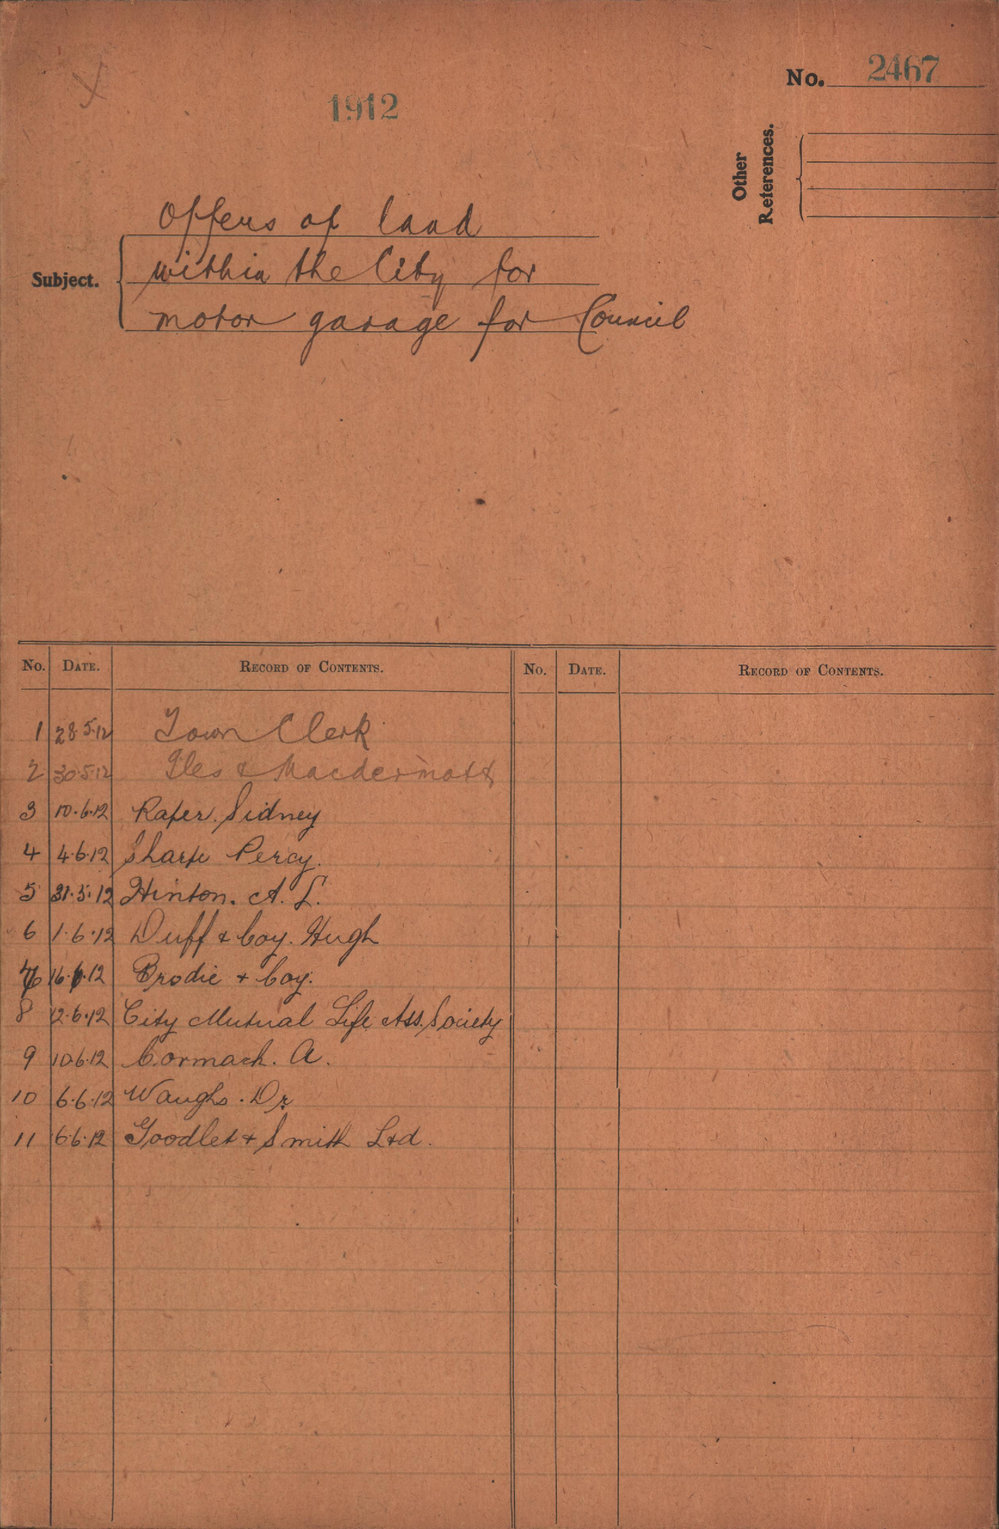 No. 2467
1912
Other
References.
Subject.
Offers of land
within the City for
motor garage for Council
No. DATE. RECORD OF CONTENTS. No. DATE. RECORD OF CONTENTS.
1 28.5.12 Town Clerk
2 30.5.12 Iles & Macdermott
3 10.6.12 Rafer. Sidney
4 4.6.12 Sharp Percy.
5 31.5.12 Hinton. A. L.
6 1.6.12 Duff & Coy. Hugh
7 16.6.12 Brodie & Coy.
8 12.6.12 City Mutual Life Ass. Society
9 10.6.12 Cormack. A.
10 6.6.12 Waugh. Dr
11 6.6.12 Goodlet & Smith Ltd.